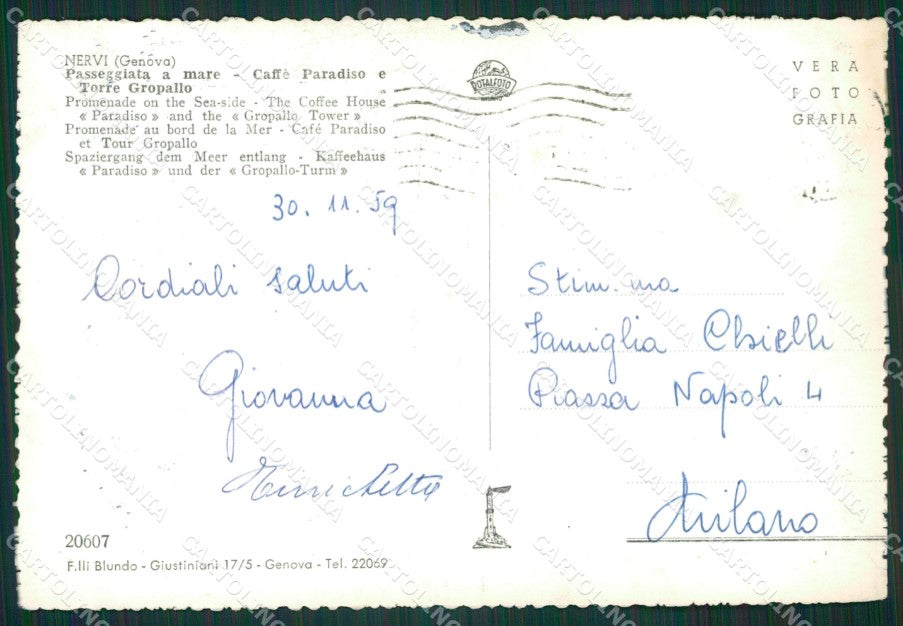 NERVI (Genova)
Passeggiata a mare - Caffè Paradiso e
Torre Gropallo
Promenade on the Sea-side - The Coffee House
« Paradiso » and the « Gropallo Tower »
Promenade au bord de la Mer - Café Paradiso
et Tour Gropallo
Spaziergang dem Meer entlang - Kaffeehaus
« Paradiso » und der « Gropallo-Turm »
TOTALFOTO
MILANO
VERA
FOTO
GRAFIA
30.11.59
Cordiali saluti
Giovanna
Enrichetta
Stim.ma
Famiglia
Piazza Napoli 4
Milano
20607
F.lli Blundo - Giustiniani 17/5 - Genova - Tel. 22069
CARTOLINOMANIA